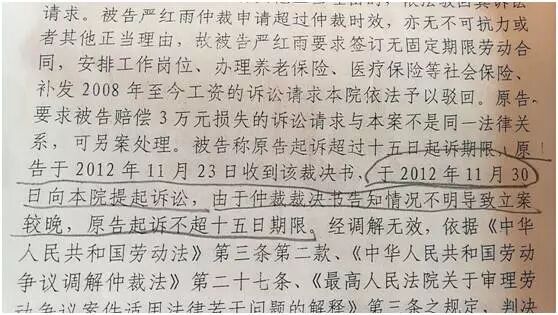 请求。被告严红雨仲裁申请超过仲裁时效，亦无不可抗力或
者其他正当理由，故被告严红雨要求签订无固定期限劳动合
同，安排工作岗位、办理养老保险、医疗保险等社会保险、
补发 2008 年至今工资的诉讼请求本院依法予以驳回。原告
要求被告赔偿 3 万元损失的诉讼请求与本案不是同一法律关
系，可另案处理。被告称原告起诉超过十五日起诉期限，原
告于 2012 年 11 月 23 日收到该裁决书，于 2012 年 11 月 30
日向本院提起诉讼，由于仲裁裁决书告知情况不明导致立案
较晚，原告起诉不超十五日期限。经调解无效，依据《中华
人民共和国劳动法》第三条第二款、《中华人民共和国劳动
争议调解仲裁法》第二十七条、《最高人民法院关于审理劳
动争议案件适用法律若干问题的解释》第三条之规定，判决